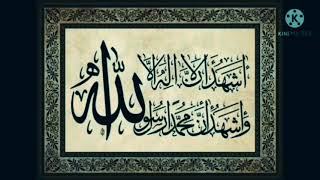 أشهد أن لا إله إلا
الله
وأشهد أن محمدا رسول